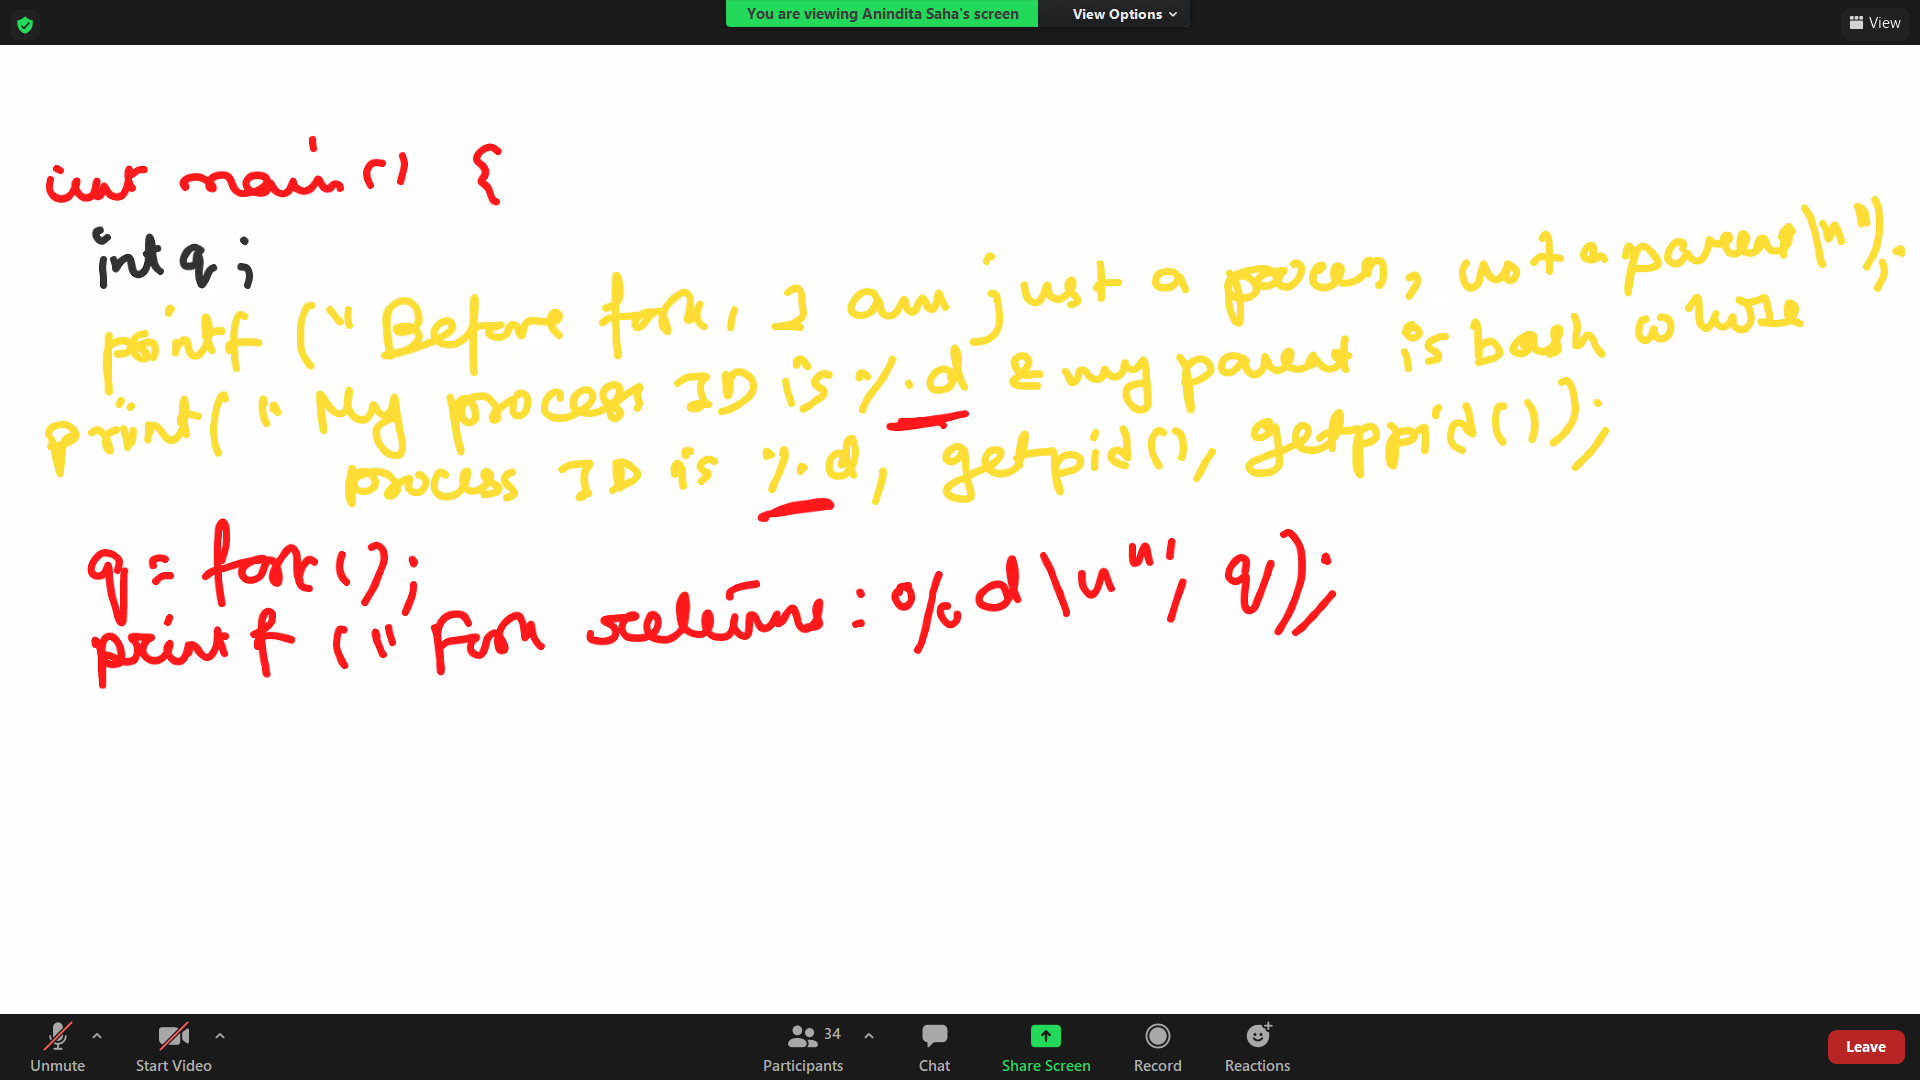 You are viewing Anindita Saha's screen View Options
View
int main() {
int q;
printf ("Before fork, I am just a process, not a parent\n");
print( " My process ID is %d & my parent is bash whose
process ID is %d, getpid(), getppid());
q = fork();
printf (" Fork returns : %d \n", q);
Unmute Start Video 34 Participants Chat Share Screen Record Reactions Leave